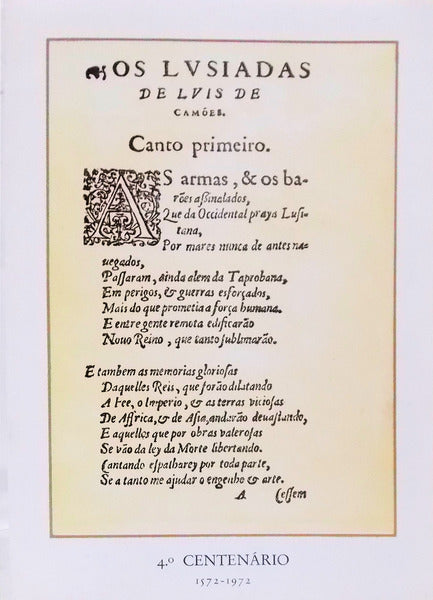 OS LVSIADAS
DE LVIS DE
CAMÕES.
Canto primeiro.
AS armas, & os ba-
rões aſsinalados,
Que da Occidental praya Luſi-
tana,
Por mares nunca de antes na-
uegados,
Paſſaram, ainda alem da Taprobana,
Em perigos, & guerras esforçados,
Mais do que prometia a força humana.
E entre gente remota edificarão
Nouo Reino, que tanto ſublimarão.
E tambem as memorias glorioſas
Daquelles Reis, que forão dilatando
A Fee, o Imperio, & as terras vicioſas
De Affrica, & de Aſia, andarão deuaſtando,
E aquelles que por obras valeroſas
Se vão da ley da Morte libertando.
Cantando eſpalharey por toda parte,
Se a tanto me ajudar o engenho & arte.
A Ceſſem
4.º CENTENÁRIO
1572-1972